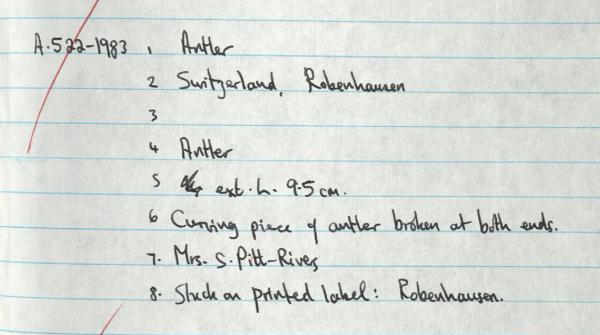 A.522-1983 1 Antler
2 Switzerland, Robenhausen
3
4 Antler
5 ext. h. 9.5 cm.
6 Curving piece of antler broken at both ends.
7. Mrs. S. Pitt-Rivers
8. Stuck on printed label: Robenhausen.